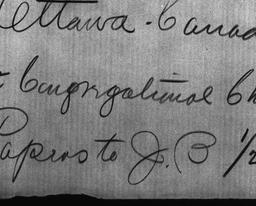 Ottawa - Canad
t Congregational Ch
Papers to J. B 1/2